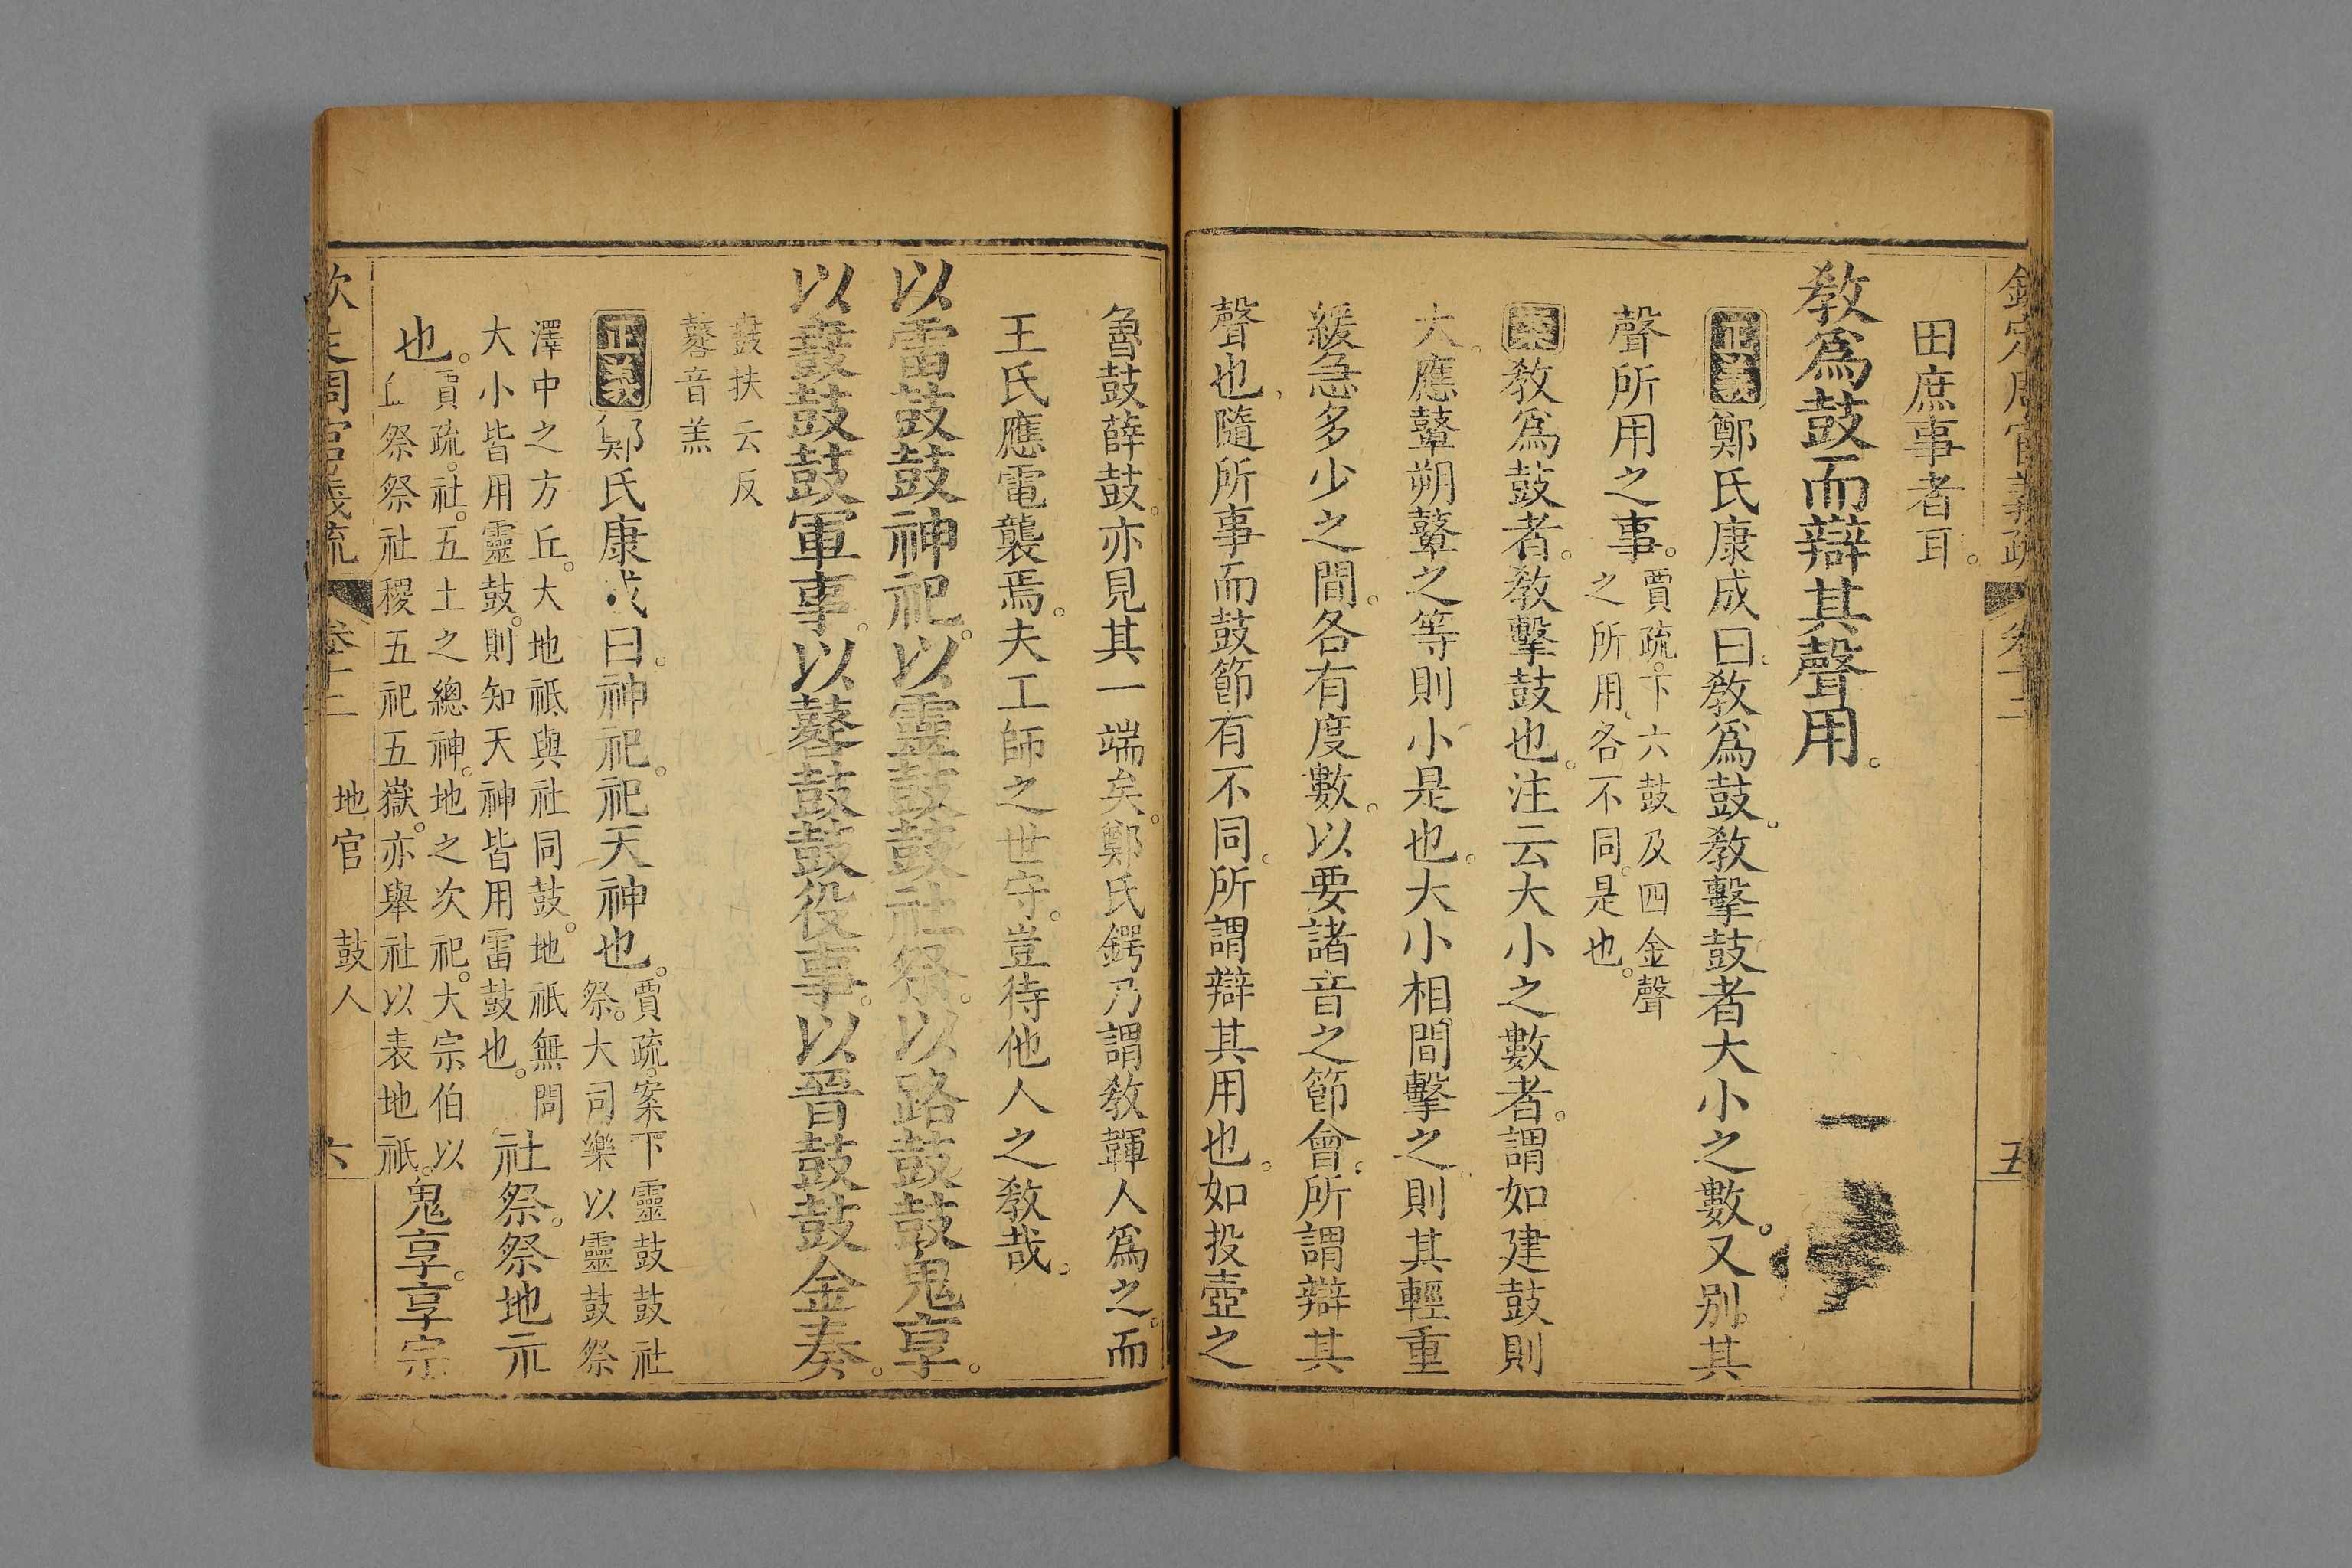 欽定周官義疏 卷十二 五
田庶事者耳。
教爲鼓而辯其聲用。
正義 鄭氏康成曰。教爲鼓。教擊鼓者大小之數。又別。其
聲所用之事。
賈疏。下六鼓及四金聲
之所用。各不同。是也。
案 教爲鼓者。教擊鼓也。注云大小之數者。謂如建鼓則
大。應鼙朔鼙之等則小是也。大小相間擊之。則其輕重
緩急多少之間。各有度數。以要諸音之節會。所謂辯其
聲也。隨所事而鼓節有不同。所謂辯其用也。如投壺之
魯鼓薛鼓。亦見其一端矣。鄭氏鍔乃謂教韗人爲之。而
王氏應電襲焉。夫工師之世守。豈待他人之教哉。
以雷鼓鼓神祀。以靈鼓鼓社祭。以路鼓鼓鬼享。
以鼖鼓鼓軍事。以鼛鼓鼓役事。以晉鼓鼓金奏。
鼖扶云反
鼛音羔
正義 鄭氏康成曰。神祀。祀天神也。
賈疏。案下靈鼓鼓社
祭。大司樂以靈鼓祭
澤中之方丘。大地祇與社同鼓。地祇無問
大小皆用靈鼓。則知天神皆用雷鼓也。
社祭。祭地示
也。
賈疏。社。五土之總神。地之次祀。大宗伯以
血祭祭社稷五祀五嶽。亦舉社以表地祇。
鬼享。享宗
欽定周官義疏 卷十二 地官 鼓人 六